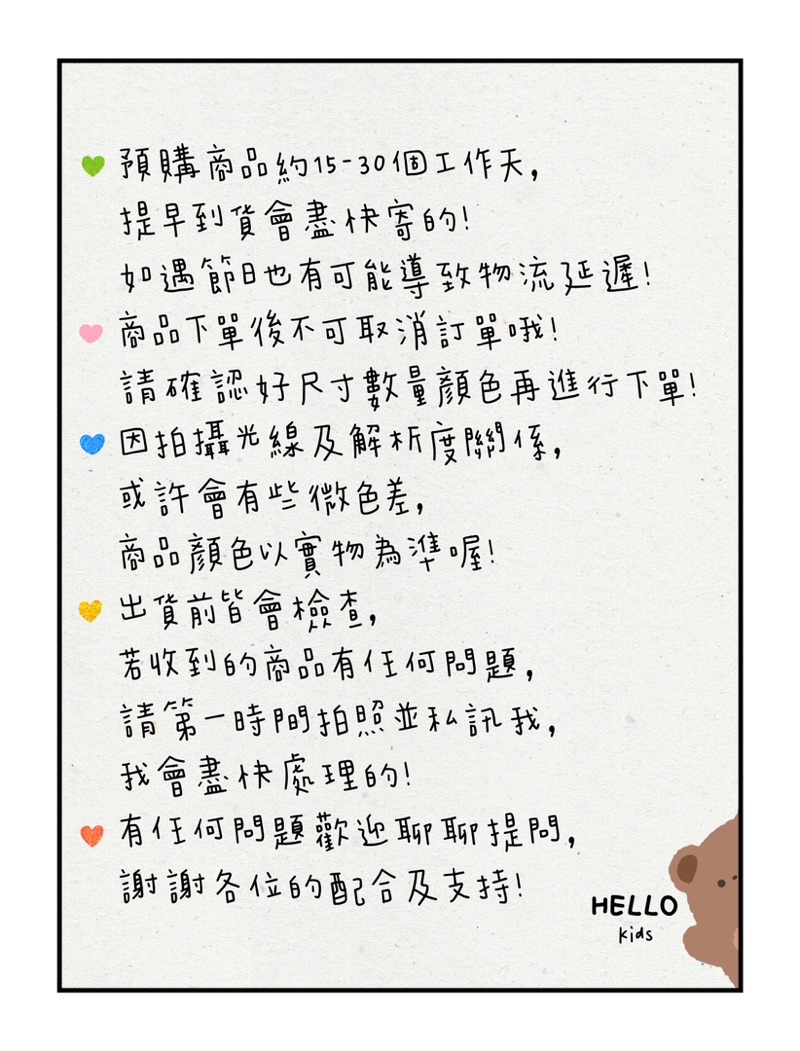 預購商品約15-30個工作天,
提早到貨會盡快寄的!
如遇節日也有可能導致物流延遲!
商品下單後不可取消訂單哦!
請確認好尺寸數量顏色再進行下單!
因拍攝光線及解析度關係,
或許會有些微色差,
商品顏色以實物為準喔!
出貨前皆會檢查,
若收到的商品有任何問題,
請第一時間拍照並私訊我,
我會盡快處理的!
有任何問題歡迎聊聊提問,
謝謝各位的配合及支持!
HELLO
kids